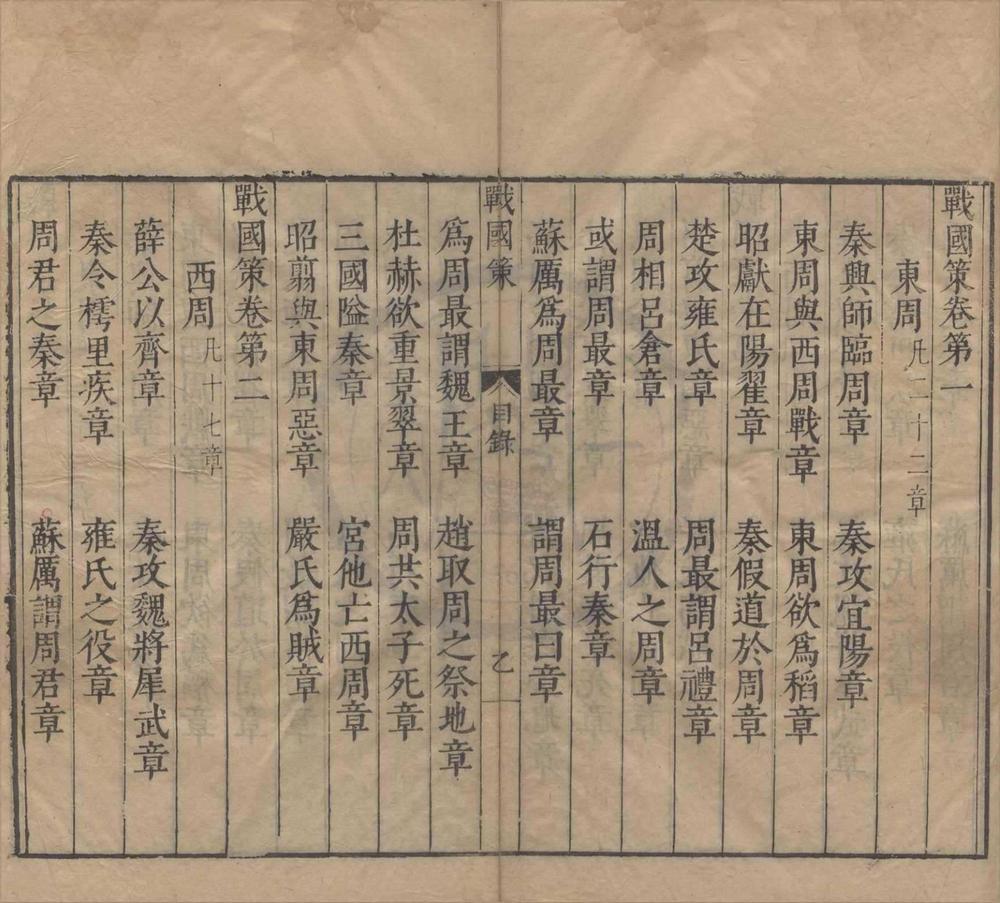 戰國策卷第一
東周凡二十二章
秦興師臨周章 秦攻宜陽章
東周與西周戰章 東周欲爲稻章
昭獻在陽翟章 秦假道於周章
楚攻雍氏章 周最謂呂禮章
周相呂倉章 溫人之周章
或謂周最章 石行秦章
蘇厲爲周最章 謂周最曰章
戰國策 目錄 乙
爲周最謂魏王章 趙取周之祭地章
杜赫欲重景翠章 周共太子死章
三國隘秦章 宮他亡西周章
昭翦與東周惡章 嚴氏爲賊章
戰國策卷第二
西周凡十七章
薛公以齊章 秦攻魏將犀武章
秦令樗里疾章 雍氏之役章
周君之秦章 蘇厲謂周君章